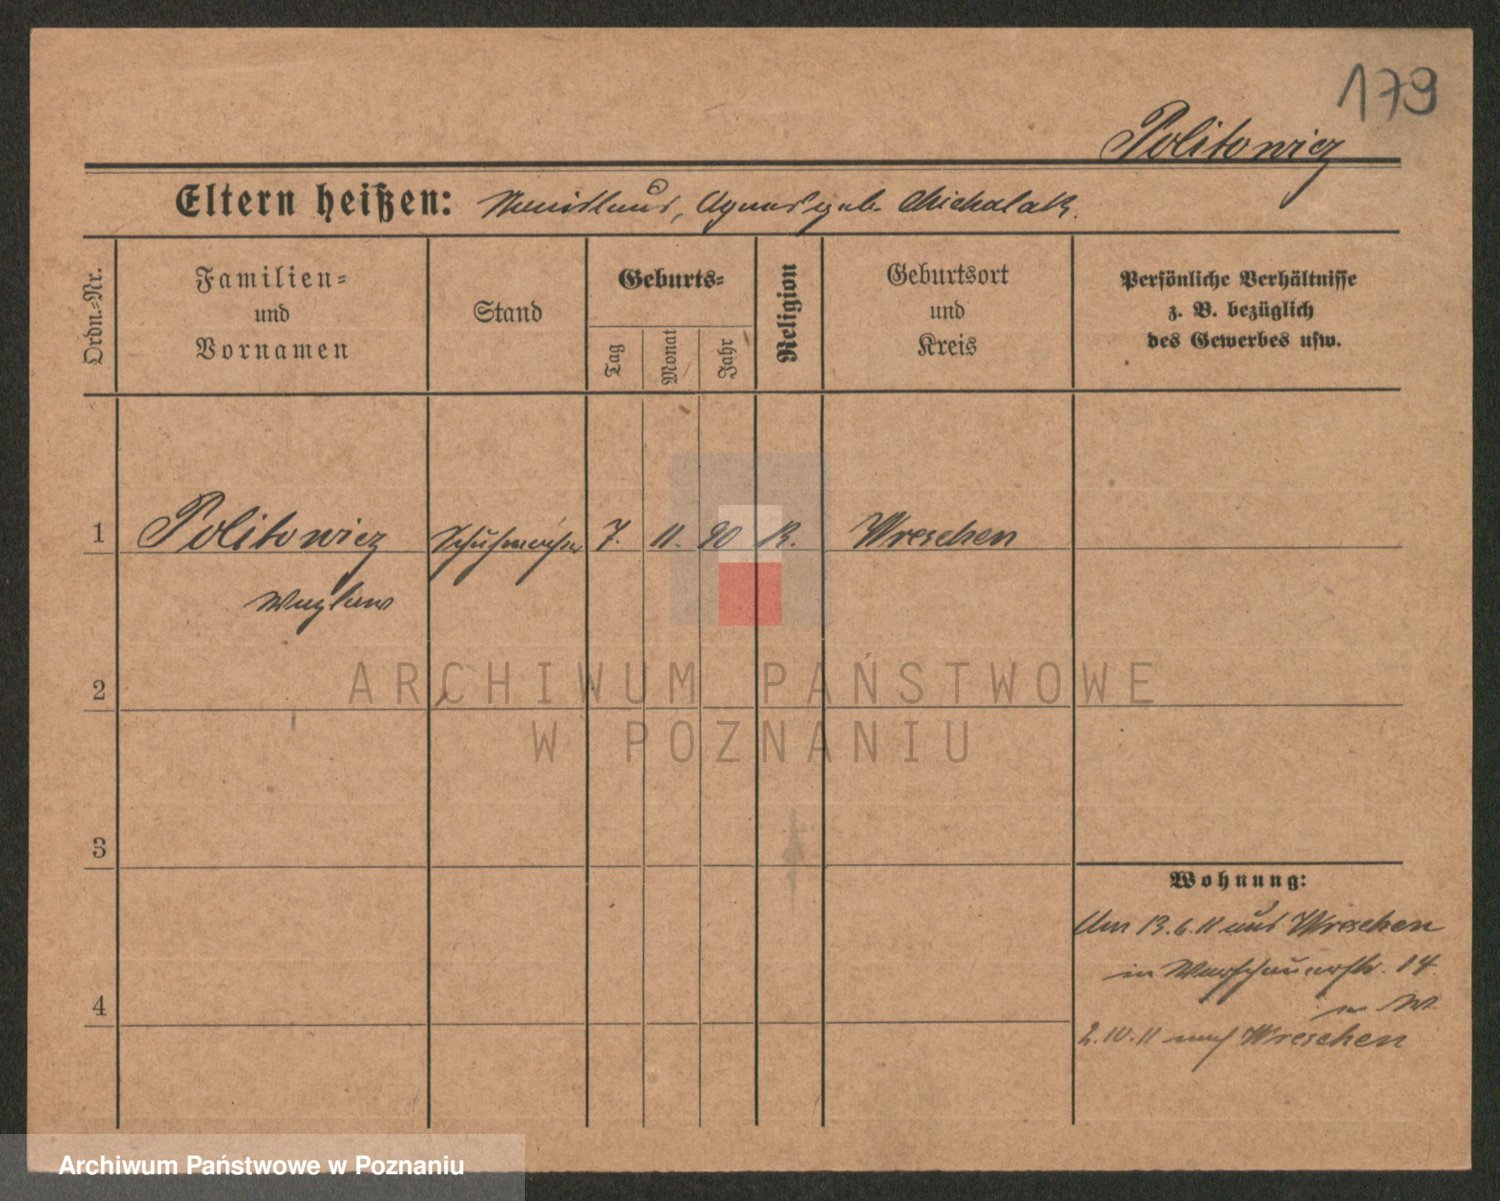 179
Politowicz
Eltern heißen: Agnes geb. Michalak.
Ordn.-Nr.
Familien-
und
Vornamen
Stand
Geburts-
Tag
Monat
Jahr
Religion
Geburtsort
und
Kreis
Persönliche Verhältnisse
z. B. bezüglich
des Gewerbes usw.
1 Politowicz Schuhmacher 7. 11. 90 K. Wreschen
Waclaw
2
ARCHIWUM PAŃSTWOWE
W POZNANIU
3
Wohnung:
Am 13.6.11 aus Wreschen
in Warschauerstr. 14
4
2.10.11 nach Wreschen
Archiwum Państwowe w Poznaniu